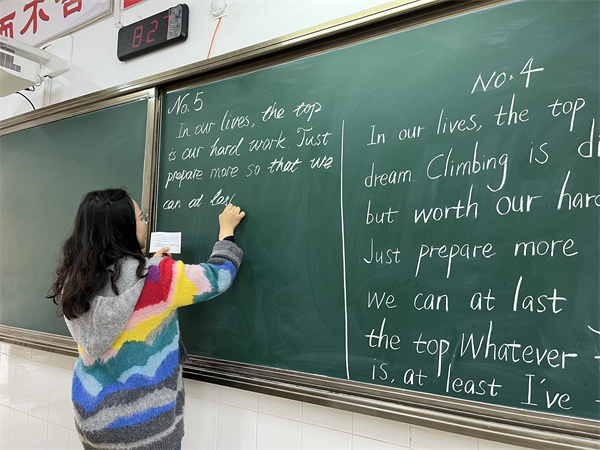 827
No.5
In our lives, the top
is our hard work. Just
prepare more so that we
can at las
No.4
In our lives, the top
dream. Climbing is di
but worth our hard
Just prepare more
we can at last
the top Whatever
is, at least I've